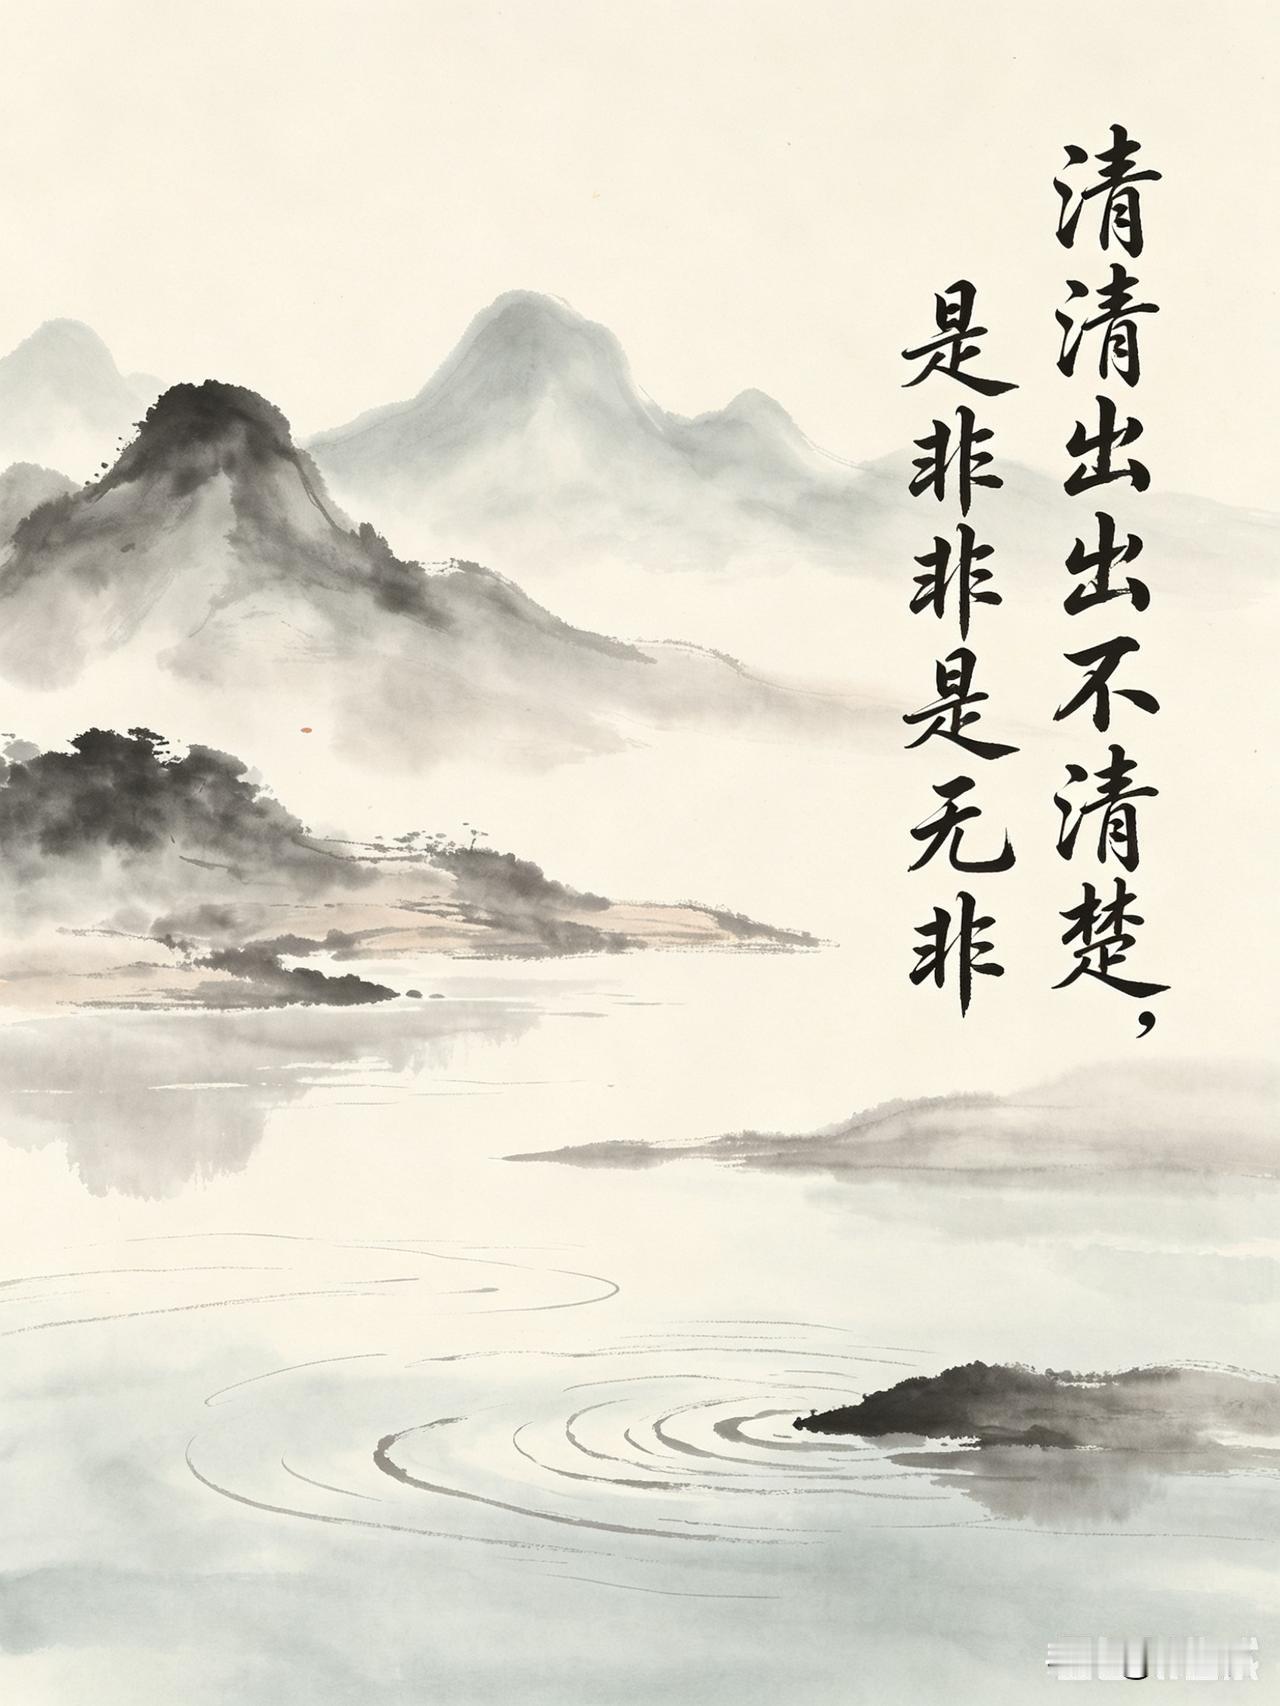 清清出出不清楚，
是非非是无非